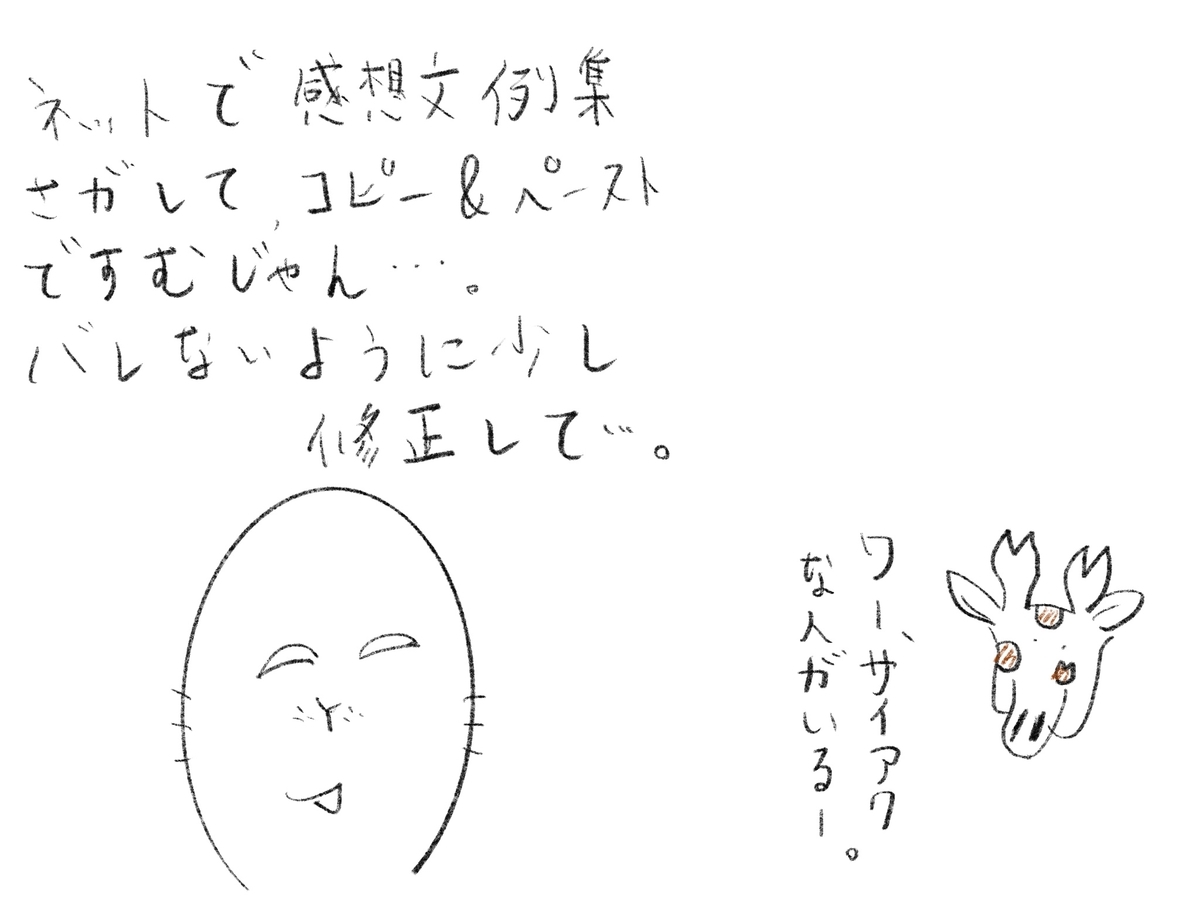 ネットで感想文例集
さがして、コピー&ペースト
ですむじゃん…。
バレないように少し
修正して…。
ワー、サイアク
な人がいるー。